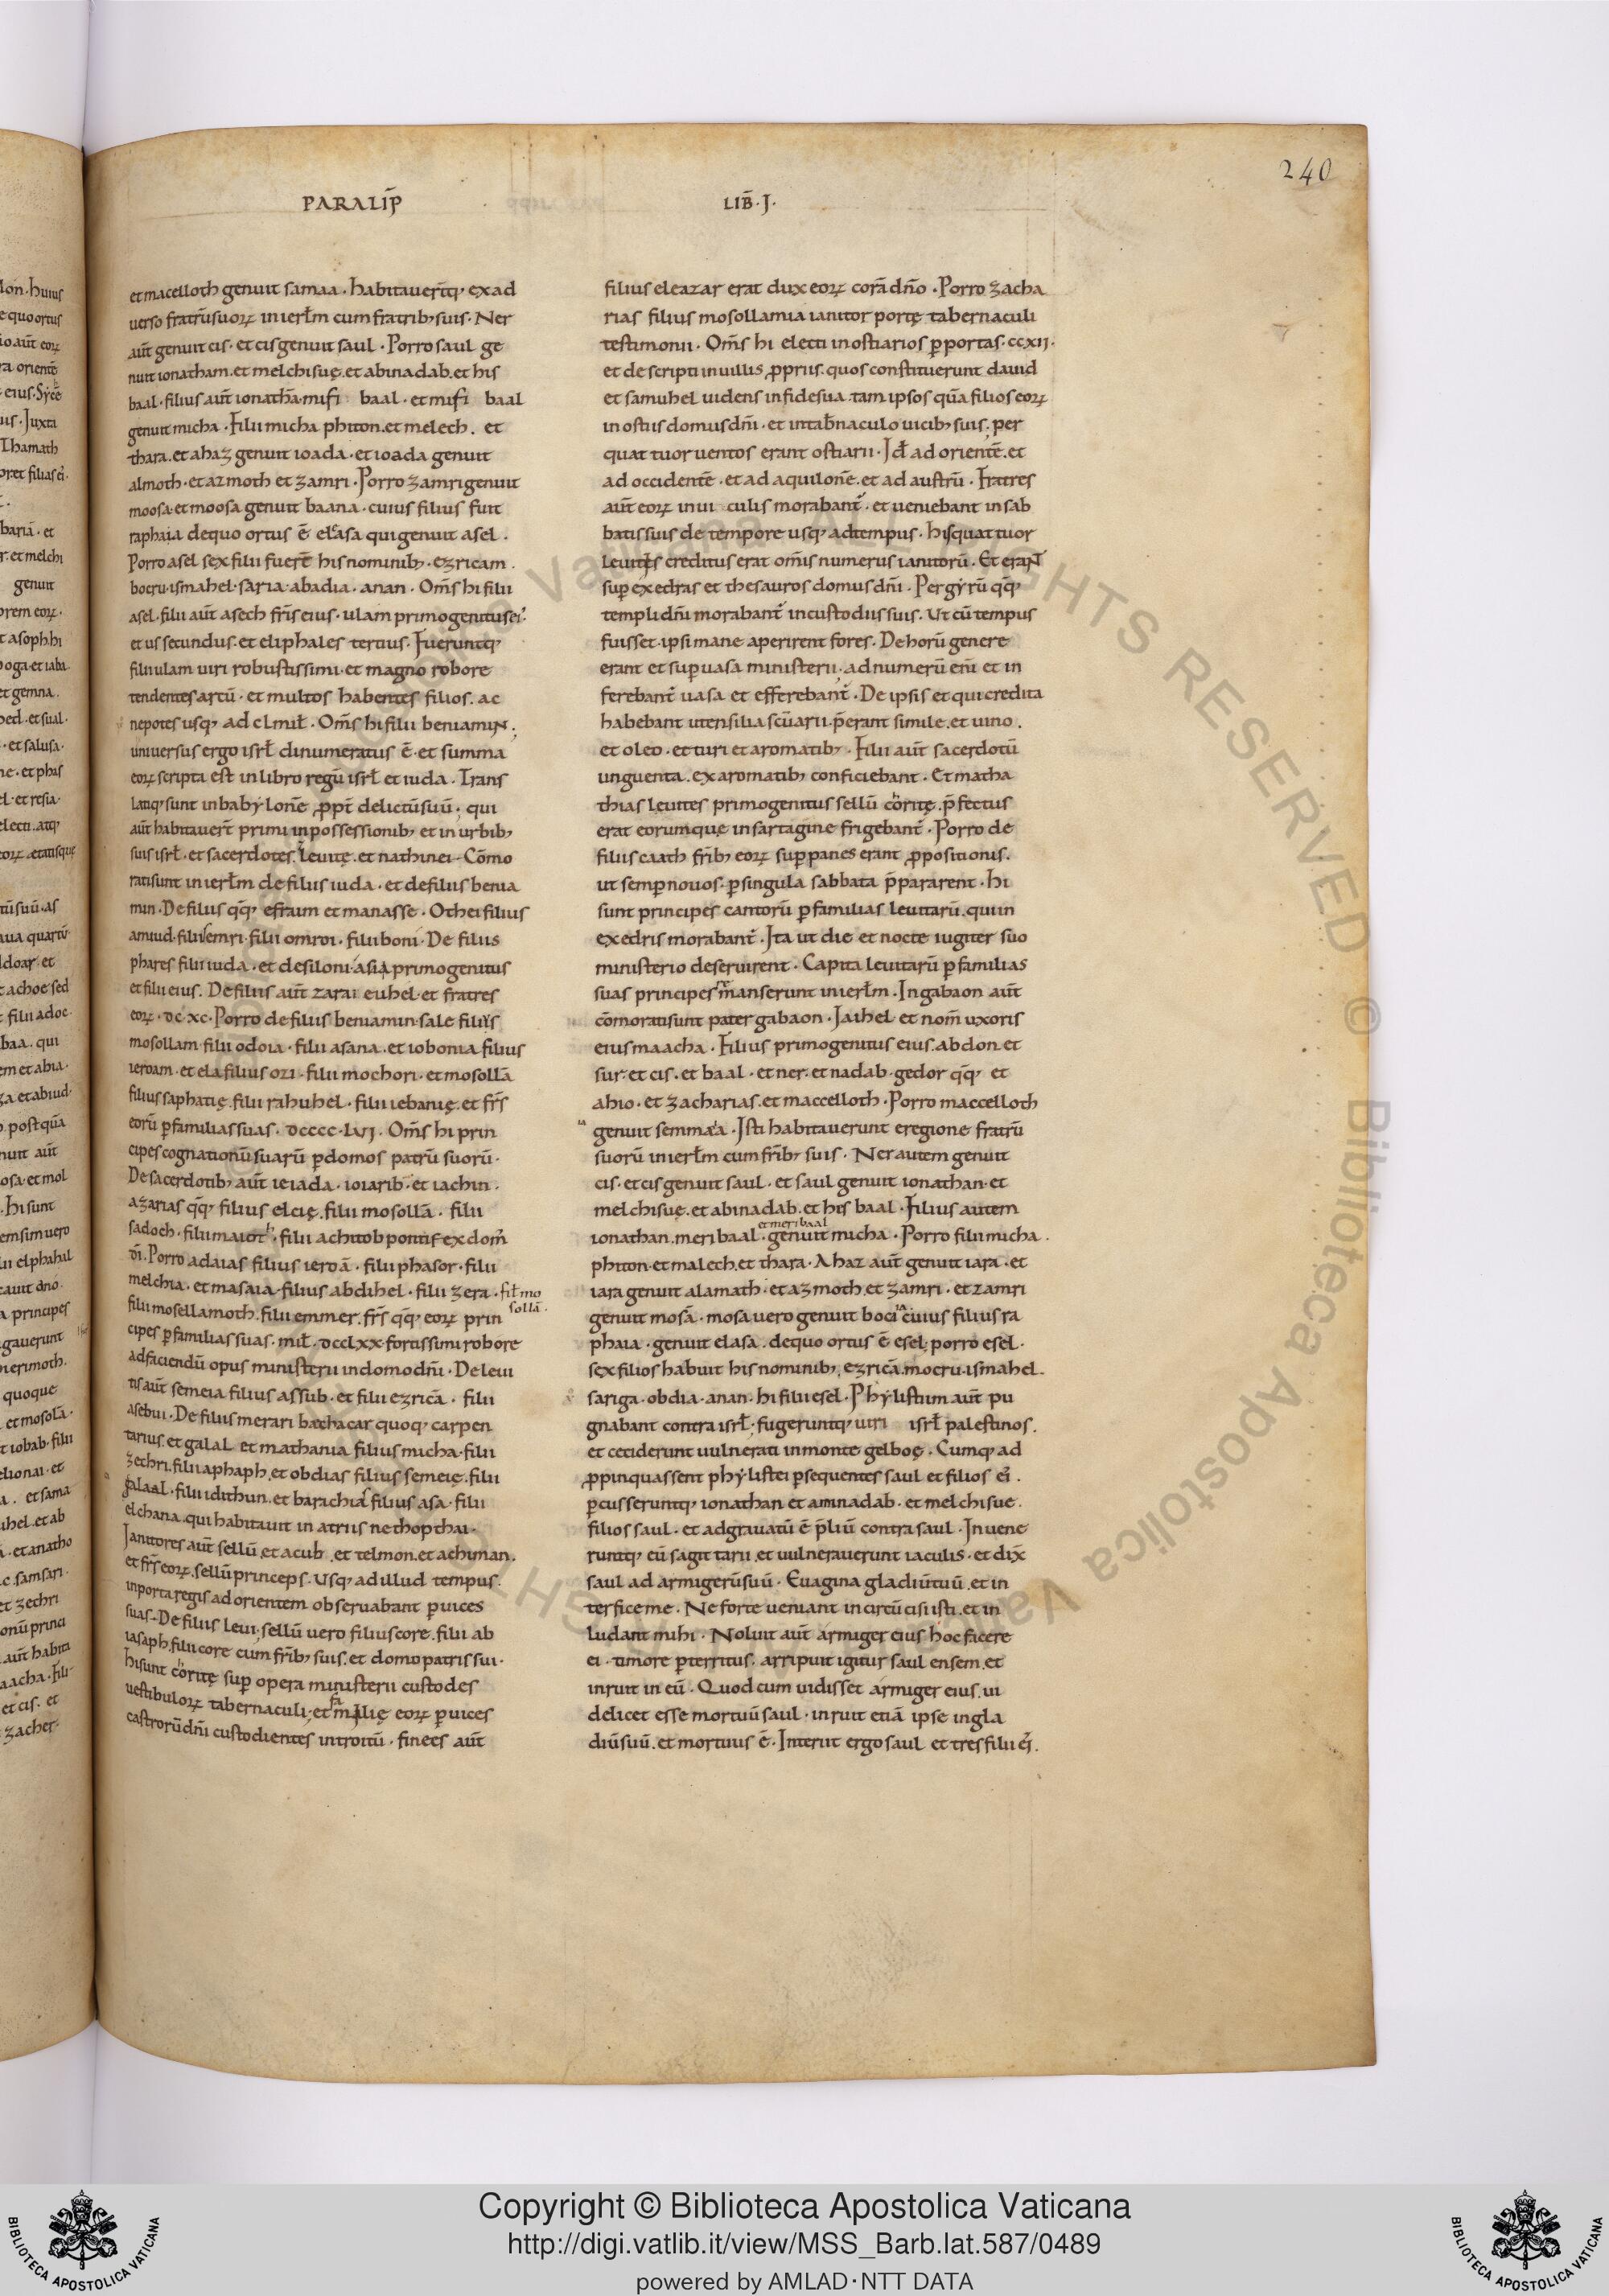 240
PARALIP̄
LIB̄·I·
et macelloth genuit samaa · habitauer̄tq; ex ad
uerso fratrū suoꝝ in ierl̄m cum fratrib; suis · Ner
aūt genuit cis · et cis genuit saul · Porro saul ge
nuit ionatham · et melchisuę · et abinadab · et his
baal · filius aūt ionathā · mifi baal · et mifi baal
genuit micha · Filii micha phiton · et melech · et
thara · et ahaz genuit ioada · et ioada genuit
almoth · et azmoth et zamri · Porro zamri genuit
moosa · et moosa genuit baana · cuius filius fuit
raphaia de quo ortus ē elasa qui genuit asel ·
Porro asel sex filii fuer̄t his nominib; · ezricam ·
bocru · ismahel · saria · abadia · anan · Om̄s hi filii
asel · filii aūt asech fr̄is eius · ulam primogenitus ei᾿·
et us secundus · et eliphales tertius · Fueruntq;
filii ulam uiri robustissimi · et magno robore
tendentes artū · et multos habentes filios · ac
nepotes usq; ad cl mil̄ · Om̄s hi filii beniamin ·;
uniuersus ergo isrl̄ dinumeratus ē · et summa
eoꝝ scripta est in libro regū isrl̄ et iuda · Trans
latiq; sunt in babylonē ꝓpt̄ delictū suū ; qui
aūt habitauer̄t primi in possessionib; et in urbib;
suis isrl̄ · et sacerdotes · leuitę · et nathinei · Cōmo
rati sunt in ierl̄m de filiis iuda · et de filiis benia
min · De filiis qq̄; efraim et manasse · Othei filius
amiud · filii emri · filii omroi · filii boni · De filiis
phares filii iuda · et de siloni · asia primogenitus
et filii eius · De filiis aūt zarai euhel · et fratres
eoꝝ · dc xc · Porro de filiis beniamin · sale filiis
mosollam · filii odoia · filii asana · et iobonia filius
ieroam · et ela filius ozi · filii mochori · et mosollā
filius saphatię · filii rahuhel · filii iebanię · et fr̄s
eorū ꝑ familias suas · dcccc · lvi · Om̄s hi prin
cipes cognationū suarū ꝑ domos patrū suorū ·
De sacerdotib; aūt ieiada · ioiarib · et iachin ·
azarias qq̄; filius elcię · filii mosollā · filii
sadoch · filii maioth · filii achitob pontif ex dom᾿
dī · Porro adaias filius ieroā · filii phasor · filii
melchia · et masaia · filius abdihel · filii zera · fil̄ mo
sollā ·
filii mosellamoth · filii emmer · fr̄s qq̄; eoꝝ prin
cipes ꝑ familias suas · mil̄ · dcclxx fortissimi robore
ad faciendū opus ministerii in domo dn̄i · De leui
tis aūt semeia filius assub · et filii ezricā · filii
asebui · De filiis merari bacbacar quoq; carpen
tarius · et galal et mathania filius micha · filii
zechri · filii aphaph · et obdias filius semeię · filii
galaal · filii idithun · et barachia filius asa · filii
elchana · qui habitauit in atriis nethopthai ·
Ianitores aūt sellū · et acub · et telmon · et achiman ·
et fr̄s eoꝝ · sellū princeps · Usq; ad illud tempus
in porta regis ad orientem obseruabant ꝑ uices
suas · De filiis leui ; sellū uero filius core · filii ab
iasaph · filii core cum fr̄ib; suis · et domo patris sui ·
hi sunt coritę sup̄ opera ministerii custodes
uestibuloꝝ tabernaculi · et familię eoꝝ ꝑ uices
castrorū dn̄i custodientes introitū · finees aūt
filius eleazar erat dux eoꝝ corā dn̄o · Porro zacha
rias filius mosollamia ianitor portę tabernaculi
testimonii · Om̄s hi electi in ostiarios ꝑ portas · ccxii ·
et descripti in uillis ꝓpriis · quos constituerunt dauid
et samuhel uidens in fide sua · tam ipsos qūa filios eoꝝ
in ostiis domus dn̄i · et in tab̄naculo uicib; suis ; per
quattuor uentos erant ostiarii · Id̄ ad orientē · et
ad occidentē · et ad aquilonē · et ad austrū · Fratres
aūt eoꝝ in ui culis morabant᾿ · et ueniebant in sab
batis suis de tempore usq; ad tempus · his quattuor
leuitis creditus erat om̄is numerus ianitorū · Et erant
sup̄ exedras et thesauros domus dn̄i · Per gyrū qq̄;
templi dn̄i morabant᾿ in custodiis suis · Ut cū tempus
fuisset · ipsi mane aperirent fores · De horū genere
erant et sup̄ uasa ministerii · ad numerū en̄i et in
ferebant᾿ uasa et efferebant᾿ · De ipsis et qui credita
habebant utensilia sc̄uarii · p̄erant simile · et uino ·
et oleo · et turi et aromatib; · Filii aūt sacerdotū
unguenta · ex aromatib; conficiebant · Et matha
thias leuites primogenitus sellū coritę · p̄fectus
erat eorum que in sartagine frigebant᾿ · Porro de
filiis caath fr̄ib; eoꝝ sup̄ panes erant ꝓpositionis ·
ut semp̄ nouos · ꝑ singula sabbata p̄pararent · hi
sunt principes cantorū ꝑ familias leuitarū · qui in
exedris morabant᾿ · Ita ut die et nocte iugiter suo
ministerio deseruirent · Capita leuitarū ꝑ familias
suas principes manserunt in ierl̄m · In gabaon aūt
cōmorati sunt pater gabaon · Iaihel et nom̄ uxoris
eius maacha · Filius primogenitus eius · abdon · et
sur · et cis · et baal · et ner · et nadab · gedor qq̄; et
ahio · et zacharias · et maccelloth · Porro maccelloth
genuit semmaa · Isti habitauerunt e regione fratrū
suorū in ierl̄m cum fr̄ib; suis · Ner autem genuit
cis · et cis genuit saul · et saul genuit ionathan · et
melchisuę · et abinadab · et his baal · Filius autem
et meribaal
ionathan · meri baal · genuit micha · Porro filii micha ·
phiton · et malech · et thara · Ahaz aūt genuit iara · et
iara genuit alamath · et azmoth · et zamri · et zamri
genuit mosā · mosa uero genuit bocia cuius filius ra
phaia · genuit elasa · de quo ortus ē esel ; porro esel ·
sex filios habuit his nominib; · ezricā · mocru · ismahel ·
sariga · obdia · anan · hi filii esel · Phylistiim aūt pu
gnabant contra isrl̄ · fugeruntq; uiri isrl̄ palestinos ·
et ceciderunt uulnerati in monte gelboę · Cumq; ad
ꝓpinquassent phylistei ꝑsequentes saul et filios ei᾿ ·
ꝑcusseruntq; ionathan et aminadab · et melchisue ·
filios saul · et adgrauatū ē p̄liū contra saul · Inuene
runtq; eū sagittarii · et uulnerauerunt iaculis · et dix̄
saul ad armigerū suū · Euagina gladiū tuū · et in
terfice me · Ne forte ueniant incircūcisi isti · et in
ludant mihi · Noluit aūt armiger eius hoc facere
ei · timore ꝑterritus · arripuit igitur saul ensem · et
inruit in eū · Quod cum uidisset armiger eius · ui
delicet esse mortuū saul · inruit etiā ipse in gla
diū suū · et mortuus ē · Interiit ergo saul et tres filii ei᾿ ·
Copyright © Biblioteca Apostolica Vaticana
http://digi.vatlib.it/view/MSS_Barb.lat.587/0489
powered by AMLAD·NTT DATA
BIBLIOTECA APOSTOLICA VATICANA
BIBLIOTECA APOSTOLICA VATICANA